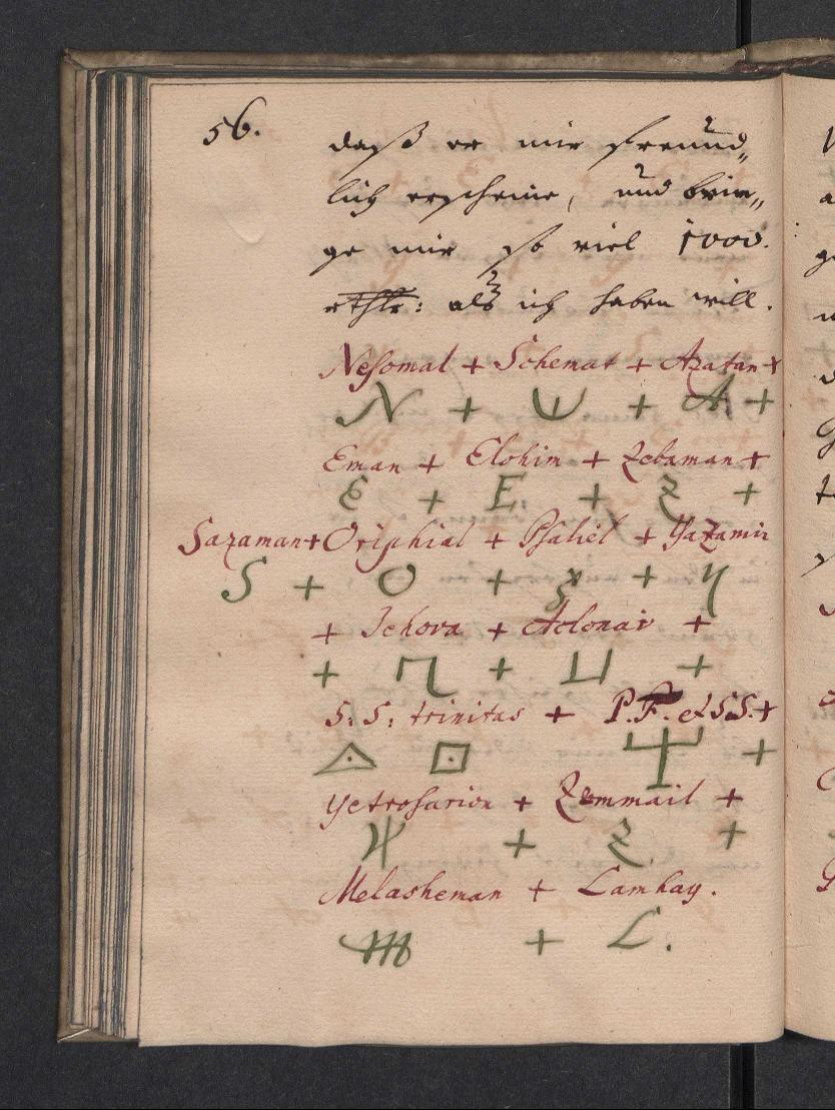 56.
daß er mir freund„
lich erscheine, und brin„
ge mir so viel 1000.
rthlr: alß ich haben will.
Nesomat + Schemat + Azatan +
N + + A +
Eman + Elohim + Zebaman +
E + E + Z +
Sazaman + Oriphial + Psaliel + Yazamir
S + O + + Y
+ Jehova + Adonair +
+ + +
S. S. trinitas + P. F. et S. S. +
+
Yetrosarion + Zemmail +
+ Z +
Melasheman + Lamhay.
M + L.